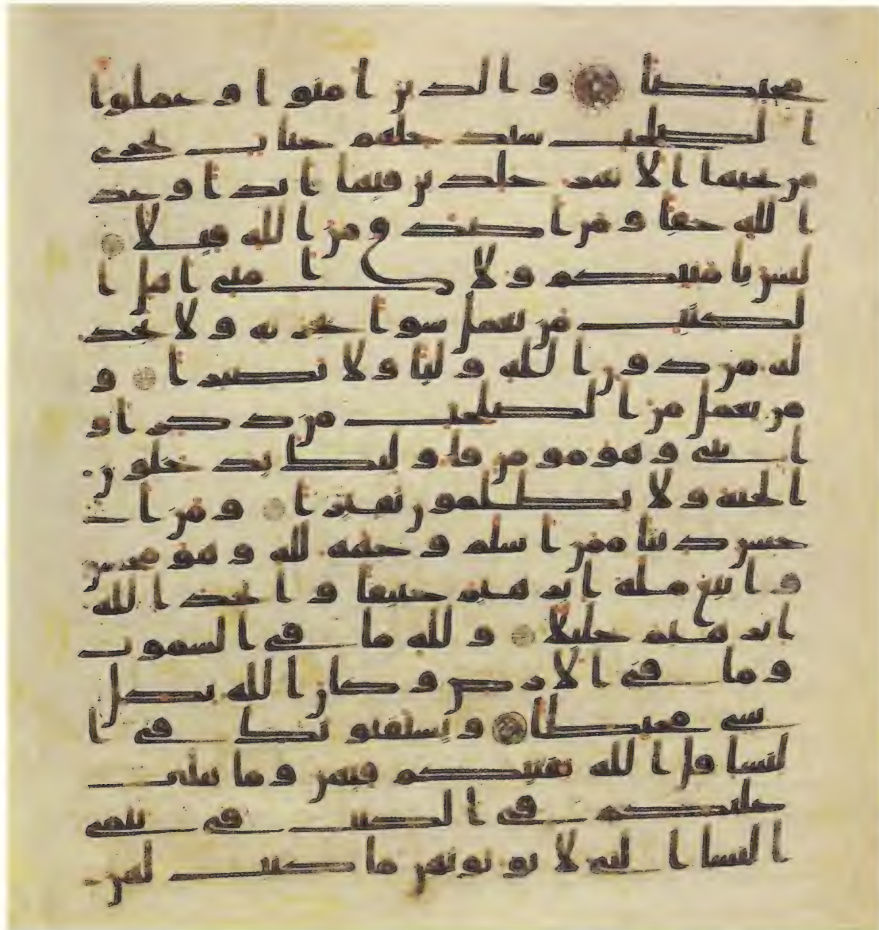 محيصا والذين امنوا وعملوا
الصلحت سندخلهم جنت تجري
من تحتها الانهر خلدين فيها ابدا وعد
الله حقا ومن اصدق من الله قيلا
ليس بامنيكم ولا اماني اهل ا
لكتب من يعمل سوا يجز به ولا يجد
له من دون الله وليا ولا نصيرا و
من يعمل من الصلحت من ذكر او
انثى وهو مومن فاوليك يدخلون
الجنة ولا يظلمون نقيرا ومن ا
حسن دينا ممن اسلم وجهه لله وهو محسن
واتبع ملة ابرهيم حنيفا واتخذ الله
ابرهيم خليلا ولله ما في السموت
وما في الارض وكان الله بكل
شي محيطا ويستفتونك في ا
لنسا قل الله يفتيكم فيهن وما يتلى
عليكم في الكتب في يتمى
النسا التي لا توتونهن ما كتب لهن